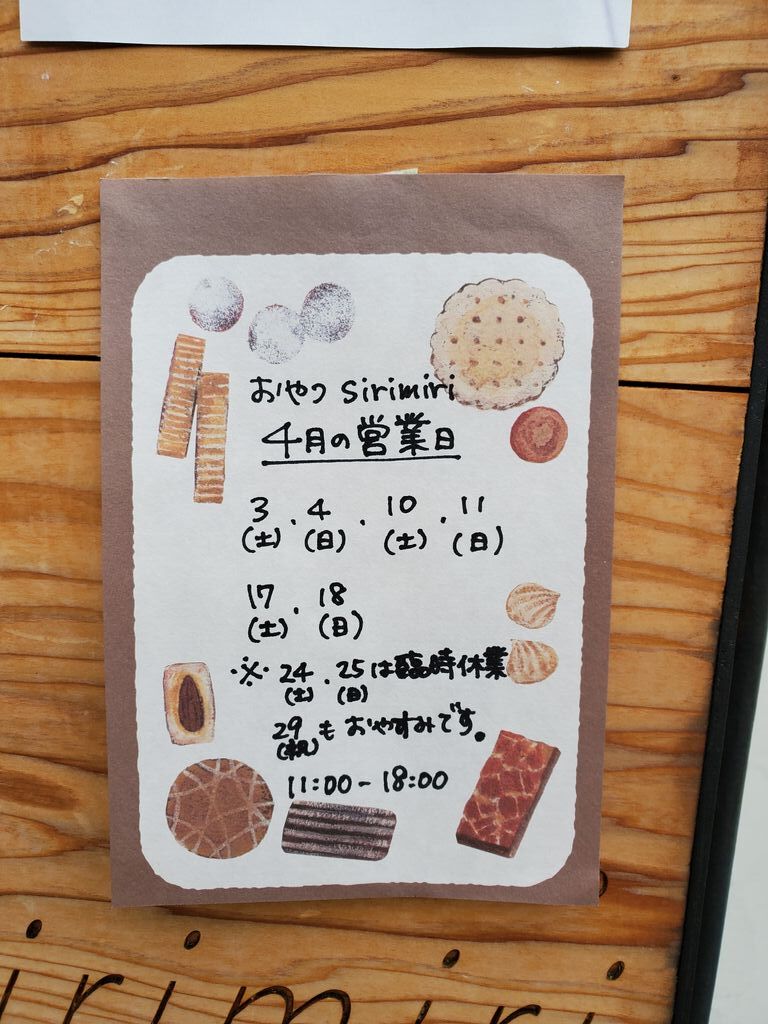 おやつ sirimiri
4月の営業日
3 . 4 . 10 . 11
(土) (日) (土) (日)
17 . 18
(土) (日)
※ 24 . 25 は臨時休業
(土) (日)
29 も おやすみです。
(祝)
11:00 - 18:00
irimiri